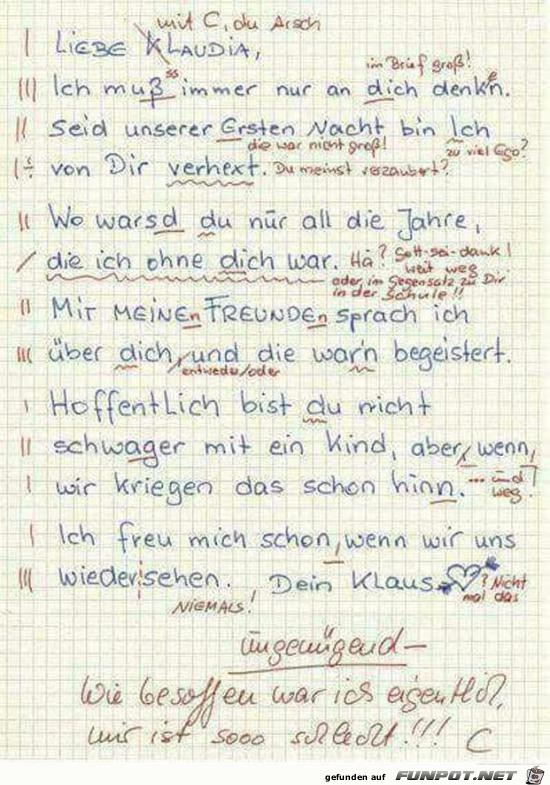 mit C, du Arsch
LIEBE KLAUDIA,
im Brief groß!
ss e
||| Ich muß immer nur an dich denk'n.
|| Seid unserer Ersten Nacht bin Ich
die war nicht groß! zu viel Ego?
von Dir verhext. Du meinst verzaubert?
|| Wo warsd du nur all die Jahre,
/ die ich ohne dich war. Hä? Gott-sei-dank!
weit weg
oder im Gegensatz zu Dir
in der Schule!!
|| Mit MEINEn FREUNDEn sprach ich
||| über dich, und die war'n begeistert.
entweder/oder
| Hoffentlich bist du nicht
|| schwager mit ein Kind, aber, wenn,
| wir kriegen das schon hinn. ...und
weg!
| Ich freu mich schon, wenn wir uns
||| wieder sehen. Dein Klaus ? Nicht
mal das
NIEMALS!
ungenügend –
Wie besoffen war ich eigentlich,
mir ist sooo schlecht!!! C
gefunden auf FUNPOT.NET